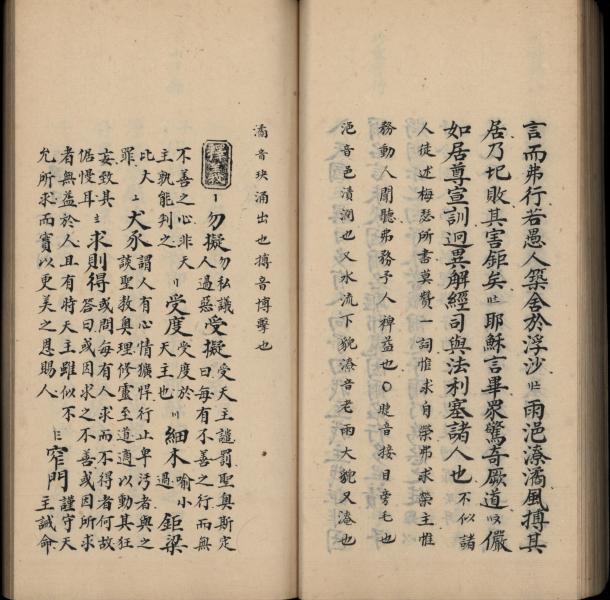 言而弗行若愚人築舍於浮沙〢雨浥潦潏風搏其
居乃圮敗其害鉅矣〢耶穌言畢眾驚奇厥道〤儼
如居尊宣訓迥異解經司與法利塞諸人也不似諸
人徒述梅瑟所書莫贊一詞惟求自榮弗求榮主惟
務動人聞聽弗務予人裨益也〇睫音接目旁毛也
浥音邑漬潤也又水流下貌潦音老雨大貌又潦也
潏音玦涌出也搏音博擊也
釋義〡勿擬勿私議人過惡受擬受天主譴罰聖奧斯定曰每有不善之行而無
不善之心非天主孰能判之〢受度受度於天主也〢細木喻小過鉅梁
比大罪〨犬豕謂人有心情獷悍行止卑污者與之談聖教奧理修靈至道適以動其狂
妄致其倨慢耳〨求則得或問每有人求而不得者何故答曰或因求之不善或因所求
者無益於人且有時天主雖似不允所求而實以更美之恩賜人〨窄門謹守天主誡命